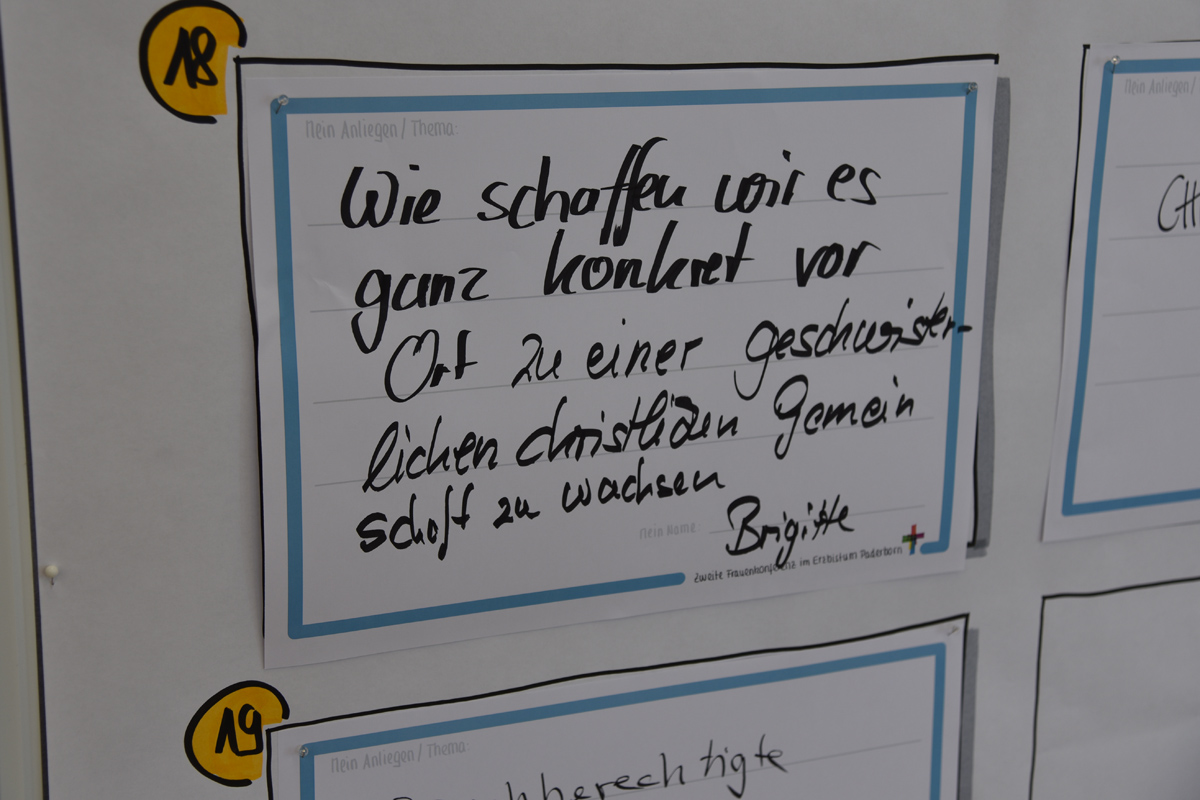 18
Mein Anliegen / Thema:
Wie schaffen wir es
ganz konkret vor
Ort zu einer geschwister-
lichen christlichen Gemein
schaft zu wachsen
Mein Name
Brigitte
Zweite Frauenkonferenz im Erzbistum Paderborn
Mein Anliegen /
CH
19
Mein Anliegen / Thema: